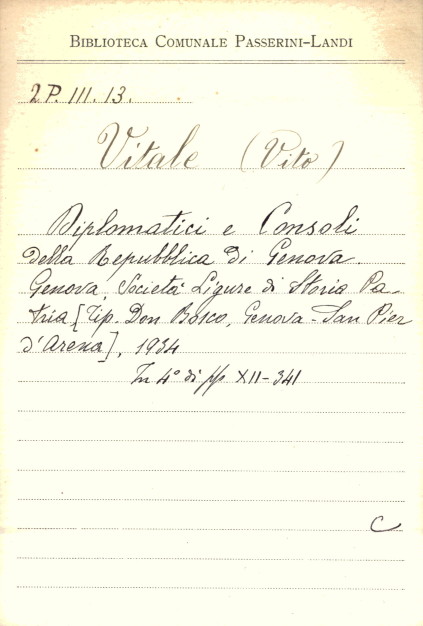 BIBLIOTECA COMUNALE PASSERINI-LANDI
2P. III. 13.
Vitale (Vito)
Diplomatici e Consoli
della Repubblica di Genova.
Genova, Società Ligure di Storia Pa-
tria [Tip. Don Bosco, Genova - San Pier
d'Arena], 1934
In 4° di pp. XII-341
C